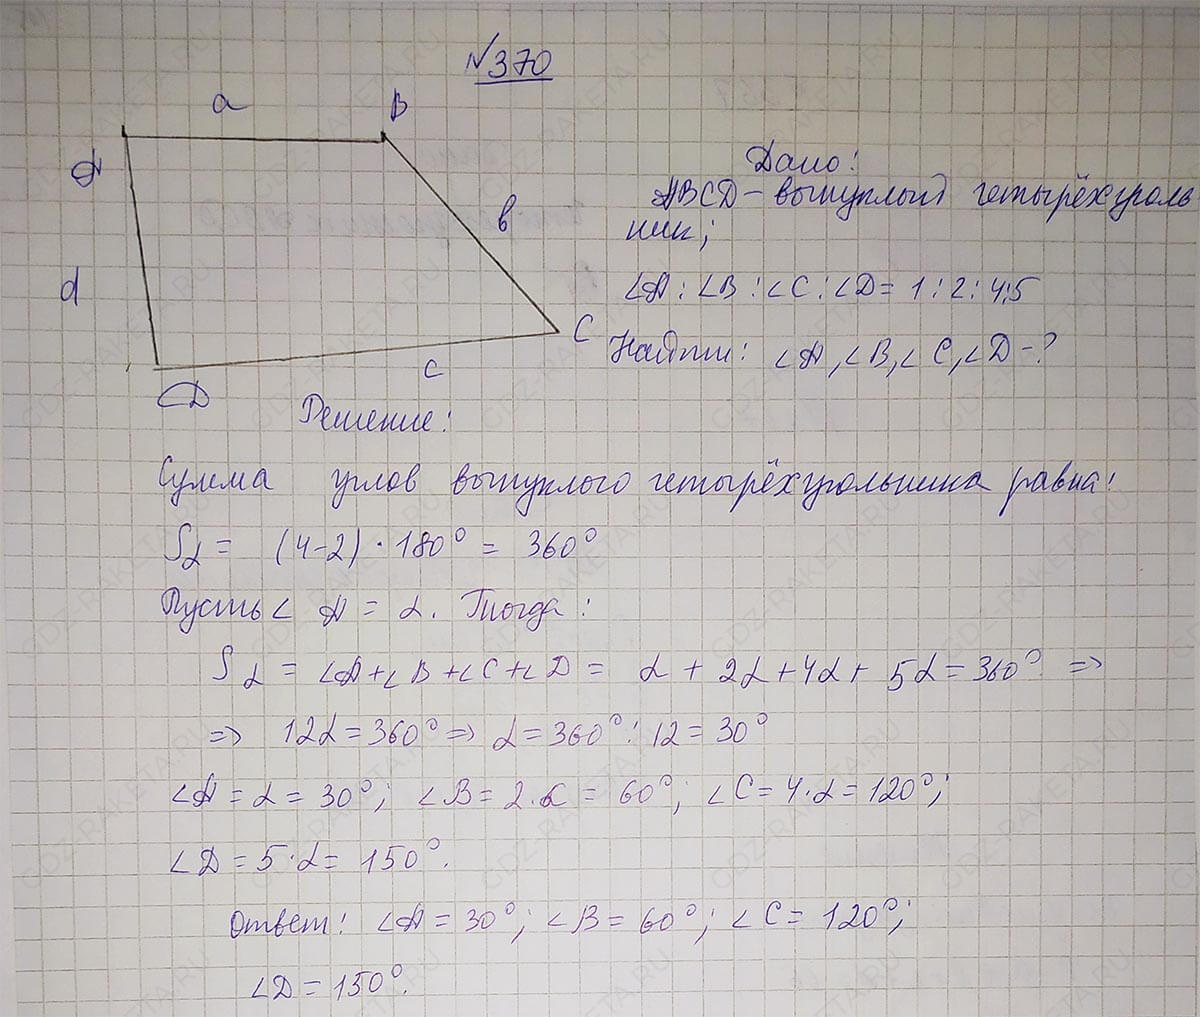 №370
a
B
A
Дано:
ABCD - выпуклый четырёхуголь
ник;
b
d
∠A : ∠B : ∠C : ∠D = 1 : 2 : 4 : 5
C
Найти: ∠A, ∠B, ∠C, ∠D - ?
c
D
Решение:
Сумма углов выпуклого четырёхугольника равна:
Sα = (4-2) · 180° = 360°
Пусть ∠A = α. Тогда:
Sα = ∠A + ∠B + ∠C + ∠D = α + 2α + 4α + 5α = 360° =>
=> 12α = 360° => α = 360° : 12 = 30°
∠A = α = 30°; ∠B = 2·α = 60°; ∠C = 4·α = 120°;
∠D = 5·α = 150°.
Ответ: ∠A = 30°; ∠B = 60°; ∠C = 120°;
∠D = 150°.
GDZ-RAKETA.RU